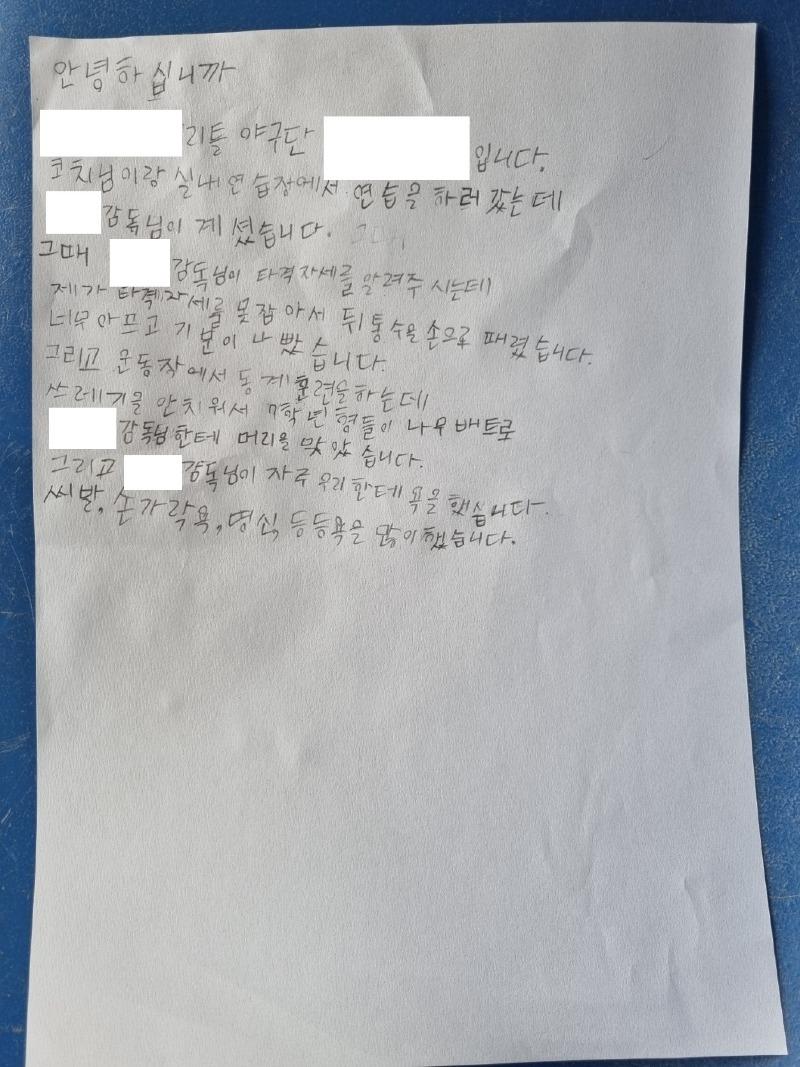 안녕하십니까
리틀 야구단 입니다.
코치님이랑 실내연습장에서 연습을 하러 갔는데
감독님이 계셨습니다. 그때
그때 감독님이 타격자세를 알려주시는데
제가 타격자세를 못잡아서 뒤통수을 손으로 때렸습니다.
너무 아프고 기분이 나빴습니다.
그리고 운동작에서 동계훈련을하는데
쓰레기를 안치워서 7학년 형들이 나무배트로
감독님한테 머리을 맞았습니다.
그리고 감독님이 자주 우리한테 욕을했습니다.
씨발, 손가락욕, 병신 등등욕을 많이했습니다.